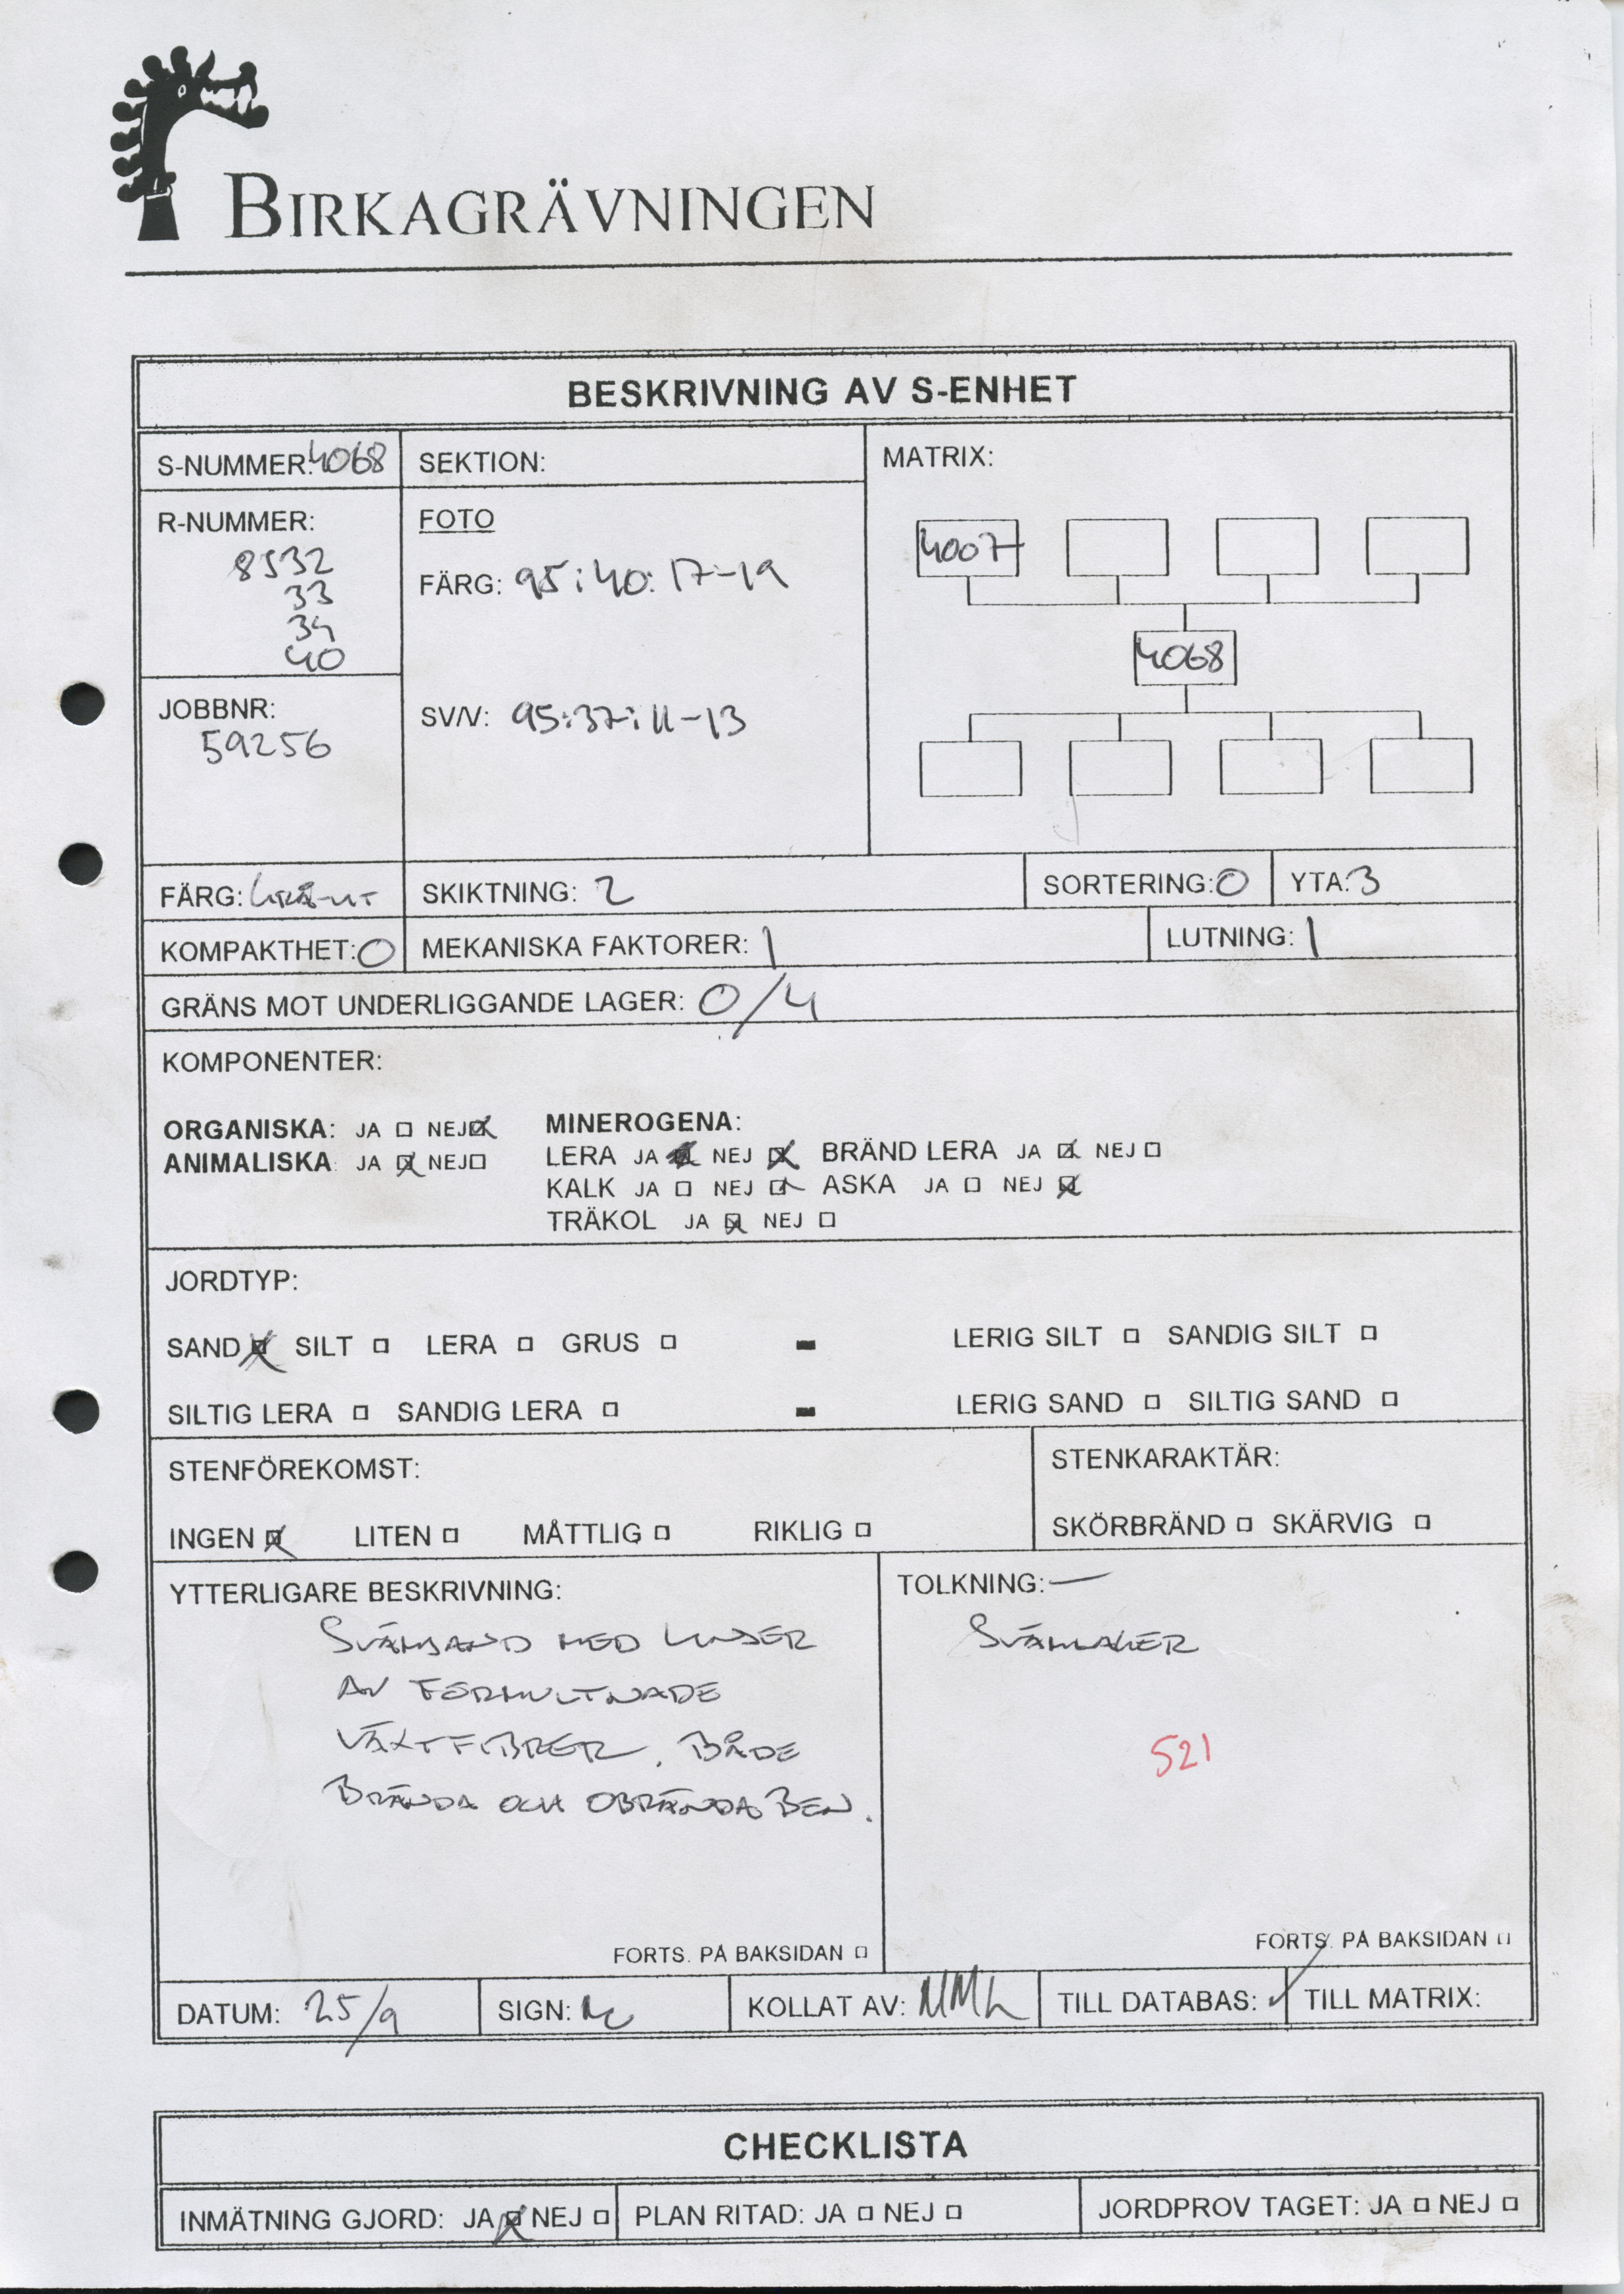 BIRKAGRÄVNINGEN
BESKRIVNING AV S-ENHET
S-NUMMER: 4068
SEKTION:
MATRIX:
R-NUMMER:
8532
33
34
40
FOTO
FÄRG: 95:40:17-19
4007
4068
JOBBNR:
59256
SV/V: 95:37:11-13
FÄRG:
SKIKTNING: 2
SORTERING: 0
YTA: 3
KOMPAKTHET: 0
MEKANISKA FAKTORER: 1
LUTNING: 1
GRÄNS MOT UNDERLIGGANDE LAGER: 0/4
KOMPONENTER:
ORGANISKA: JA NEJ
ANIMALISKA: JA NEJ
MINEROGENA:
LERA JA NEJ BRÄND LERA JA NEJ
KALK JA NEJ ASKA JA NEJ
TRÄKOL JA NEJ
JORDTYP:
SAND SILT LERA GRUS - LERIG SILT SANDIG SILT
SILTIG LERA SANDIG LERA - LERIG SAND SILTIG SAND
STENFÖREKOMST:
INGEN LITEN MÅTTLIG RIKLIG
STENKARAKTÄR:
SKÖRBRÄND SKÄRVIG
YTTERLIGARE BESKRIVNING:
SVÄMSAND MED LINSER
AV FÖRMULTNADE
VÄXTFIBRER. BÅDE
BRÄNDA OCH OBRÄNDA BEN.
FORTS. PÅ BAKSIDAN
TOLKNING: —
SVÄMLAGER
521
FORTS. PÅ BAKSIDAN
DATUM: 25/9
SIGN:
KOLLAT AV: MML
TILL DATABAS: ✓
TILL MATRIX:
CHECKLISTA
INMÄTNING GJORD: JA NEJ
PLAN RITAD: JA NEJ
JORDPROV TAGET: JA NEJ